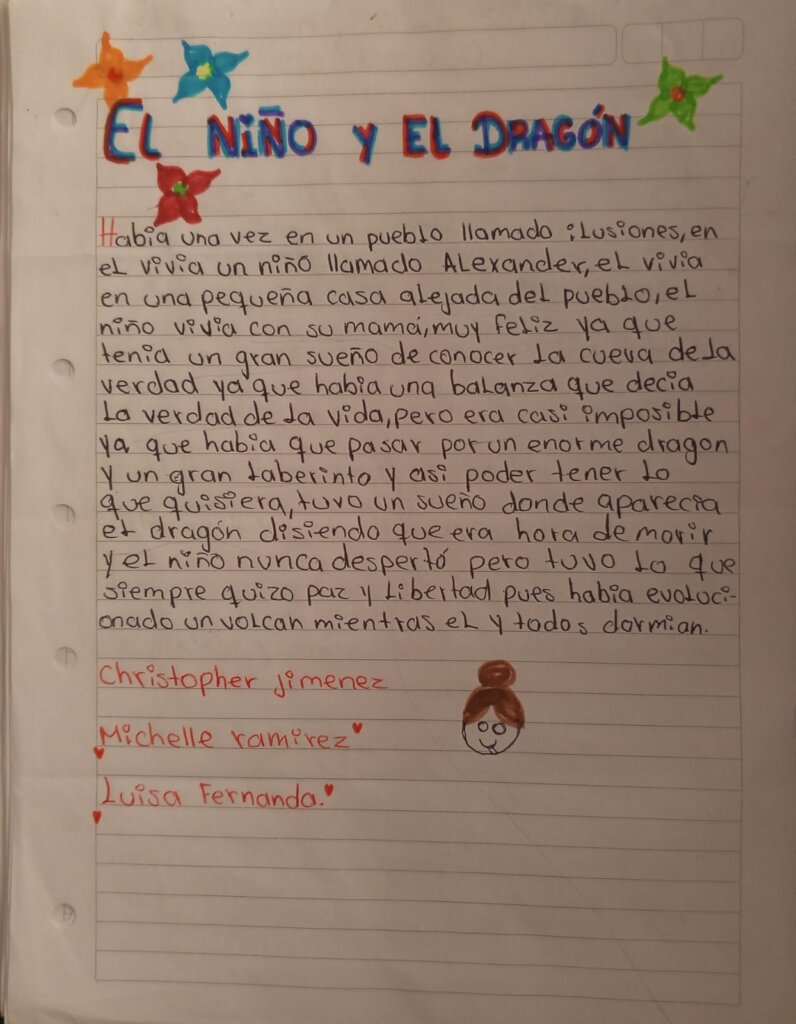 EL NIÑO Y EL DRAGÓN
Habia una vez en un pueblo llamado ilusiones, en
el vivia un niño llamado Alexander, el vivia
en una pequeña casa alejada del pueblo, el
niño vivia con su mamá, muy feliz ya que
tenia un gran sueño de conocer la cueva de la
verdad ya que habia una balanza que decia
la verdad de la vida, pero era casi imposible
ya que habia que pasar por un enorme dragon
y un gran laberinto y asi poder tener lo
que quisiera, tuvo un sueño donde aparecia
el dragón disiendo que era hora de morir
y el niño nunca despertó pero tuvo lo que
siempre quizo paz y libertad pues habia evoluci-
onado un volcan mientras el y todos dormian.
Christopher Jimenez
Michelle ramirez
Luisa Fernanda.